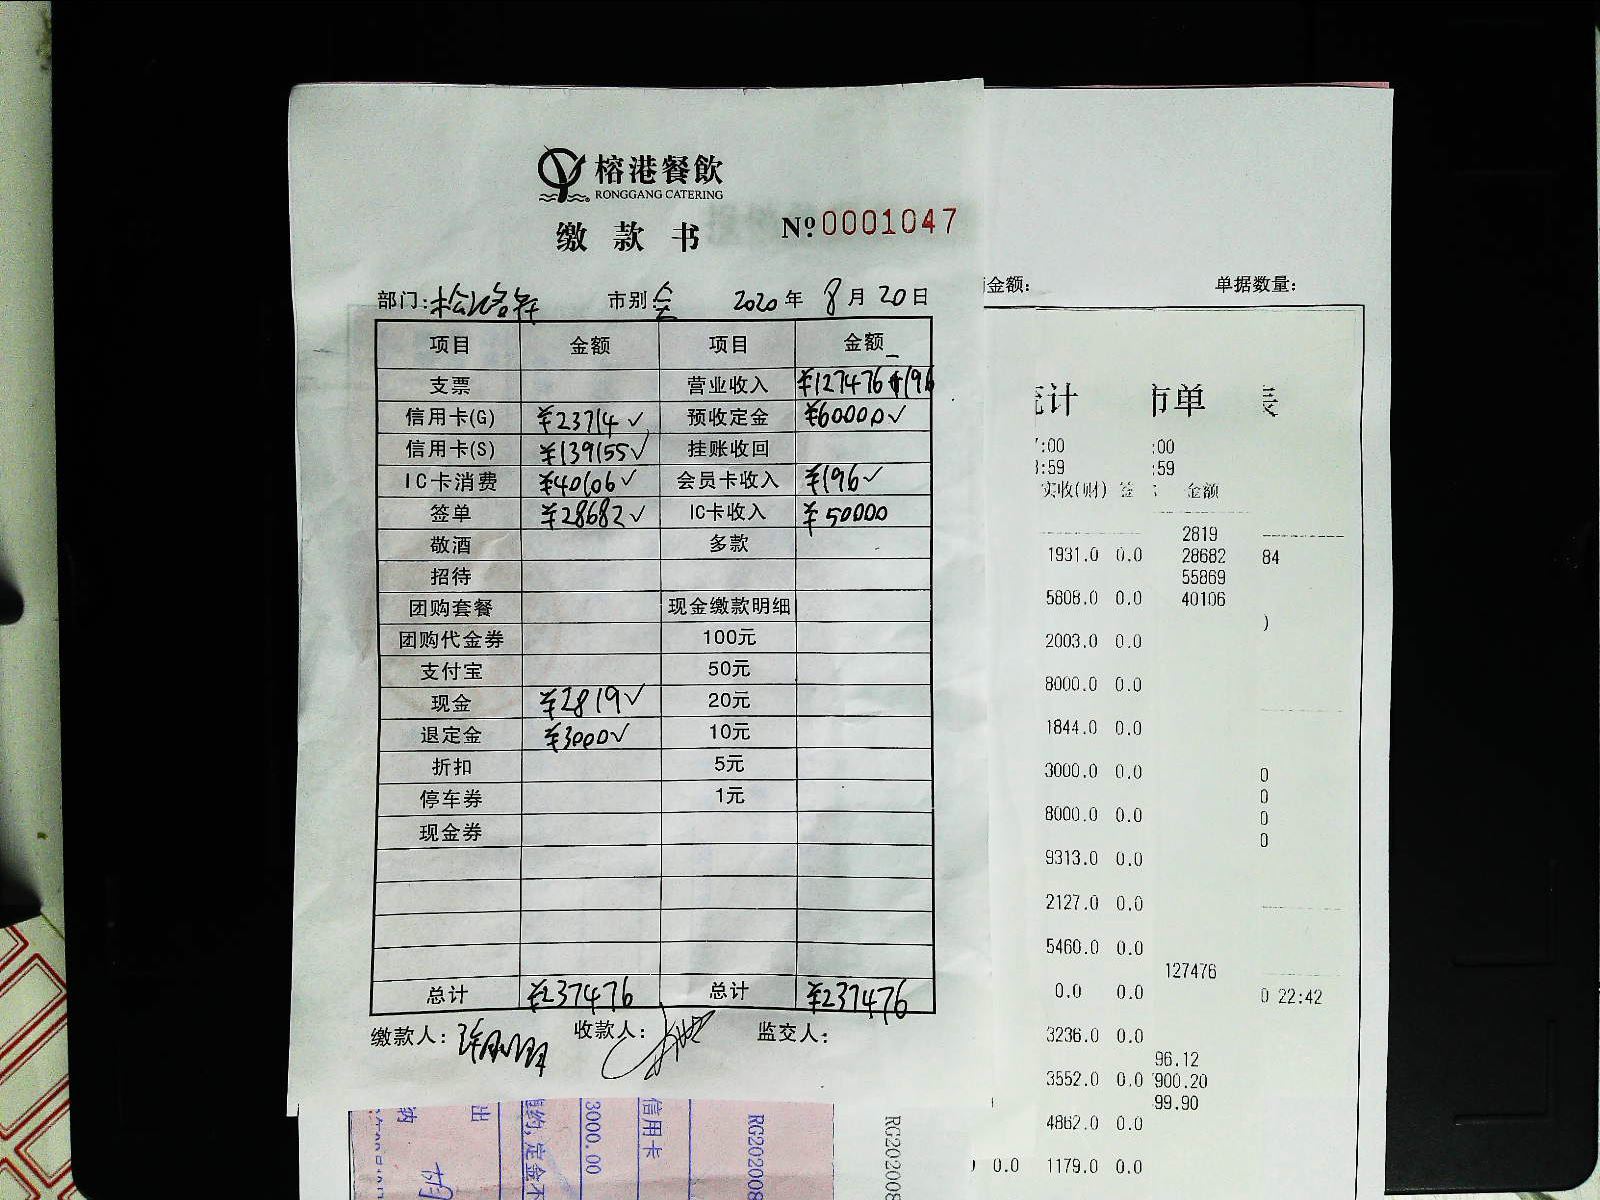 榕港餐飲
RONGGANG CATERING
缴款书 № 0001047
部门: 市别 全 2020年 8月 20日
项目 金额 项目 金额
支票 营业收入 ¥127476+196
信用卡(G) ¥23714✓ 预收定金 ¥60000✓
信用卡(S) ¥139155✓ 挂账收回
IC卡消费 ¥40106✓ 会员卡收入 ¥196✓
签单 ¥28682✓ IC卡收入 ¥50000
敬酒 多款
招待
团购套餐 现金缴款明细
团购代金券 100元
支付宝 50元
现金 ¥2819✓ 20元
退定金 ¥3000✓ 10元
折扣 5元
停车券 1元
现金券
总计 ¥237476 总计 ¥237476
缴款人: 收款人: 监交人:
金额: 单据数量:
计 市单 表
:00 :00
:59 :59
实收(财) 签 金额
2819
1931.0 0.0 28682 84
55869
5608.0 0.0 40106
)
2003.0 0.0
8000.0 0.0
1844.0 0.0
3000.0 0.0 0
0
8000.0 0.0 0
0
9313.0 0.0
2127.0 0.0
5460.0 0.0
127476
0.0 0.0 0 22:42
3236.0 0.0
96.12
3552.0 0.0 900.20
99.90
4862.0 0.0
0.0 1179.0 0.0
出
约,定金不
3000.00
信用卡
RG202008
RG202008